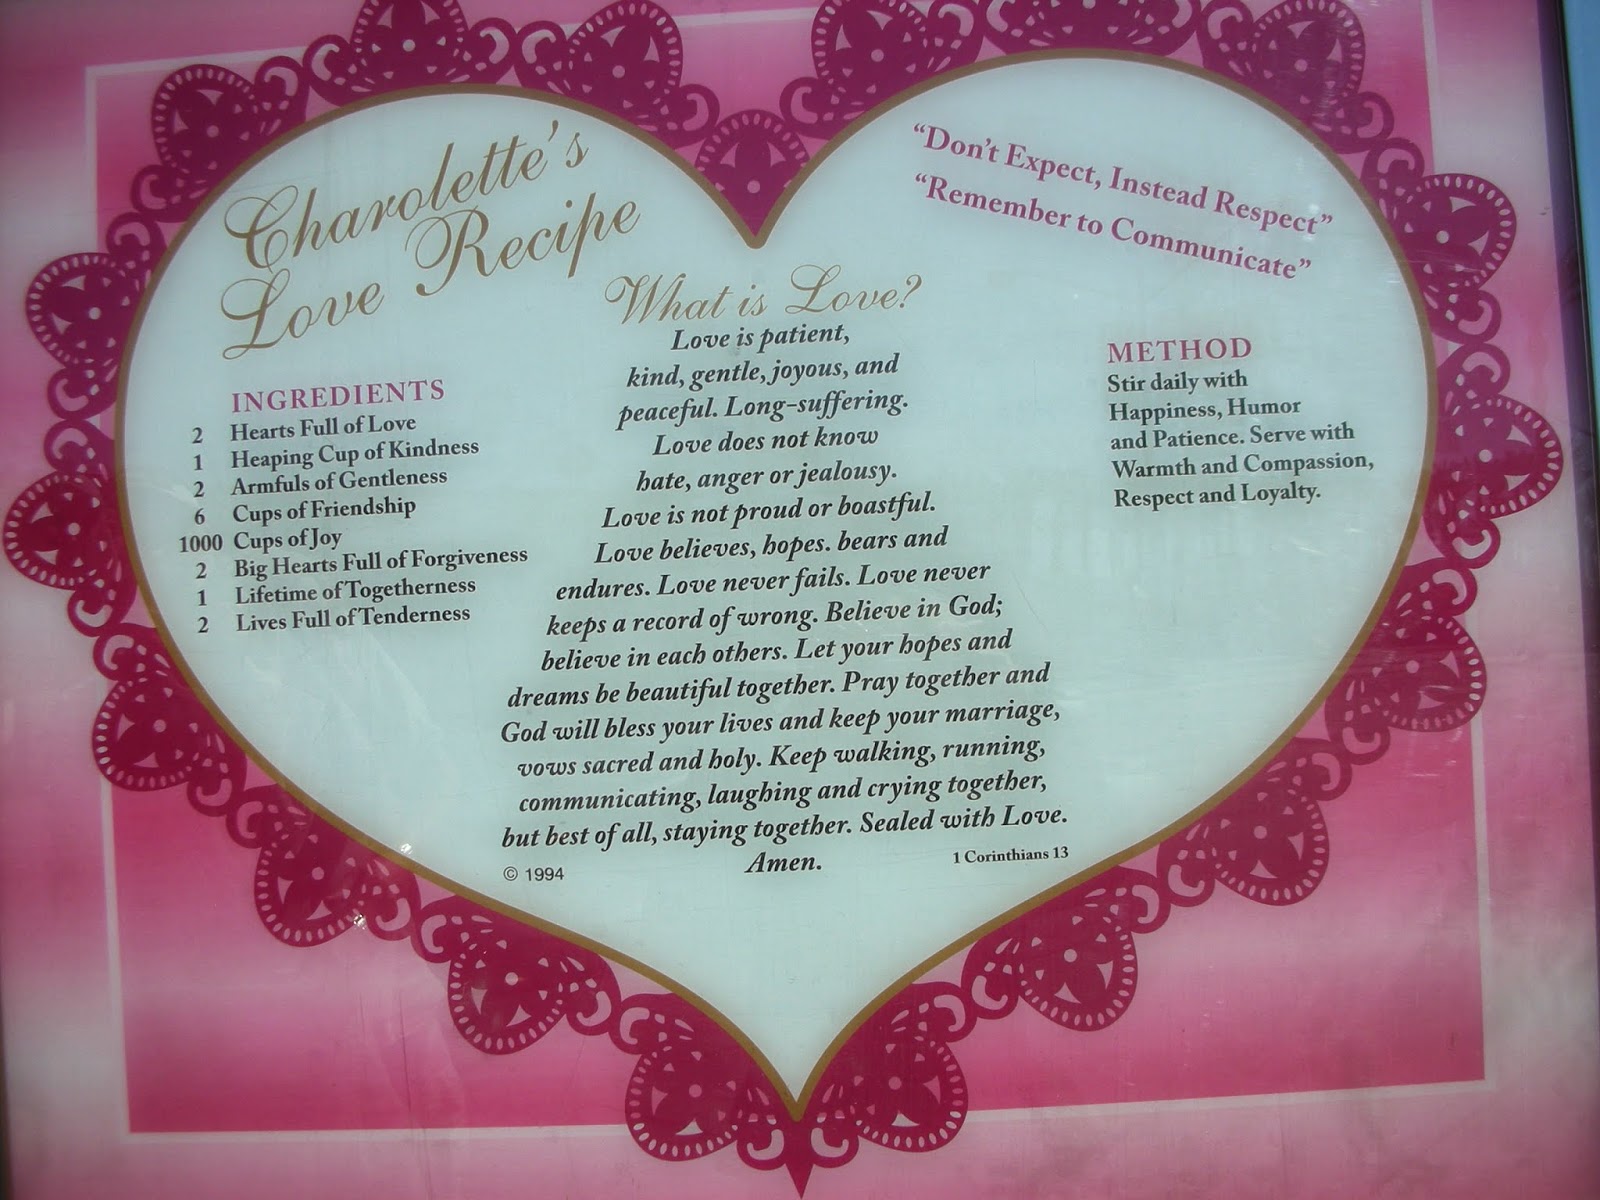 Charolette's
Love Recipe
"Don't Expect, Instead Respect"
"Remember to Communicate"
INGREDIENTS
2 Hearts Full of Love
1 Heaping Cup of Kindness
2 Armfuls of Gentleness
6 Cups of Friendship
1000 Cups of Joy
2 Big Hearts Full of Forgiveness
1 Lifetime of Togetherness
2 Lives Full of Tenderness
What is Love?
Love is patient,
kind, gentle, joyous, and
peaceful. Long-suffering.
Love does not know
hate, anger or jealousy.
Love is not proud or boastful.
Love believes, hopes. bears and
endures. Love never fails. Love never
keeps a record of wrong. Believe in God;
believe in each others. Let your hopes and
dreams be beautiful together. Pray together and
God will bless your lives and keep your marriage,
vows sacred and holy. Keep walking, running,
communicating, laughing and crying together,
but best of all, staying together. Sealed with Love.
Amen.
1 Corinthians 13
© 1994
METHOD
Stir daily with
Happiness, Humor
and Patience. Serve with
Warmth and Compassion,
Respect and Loyalty.